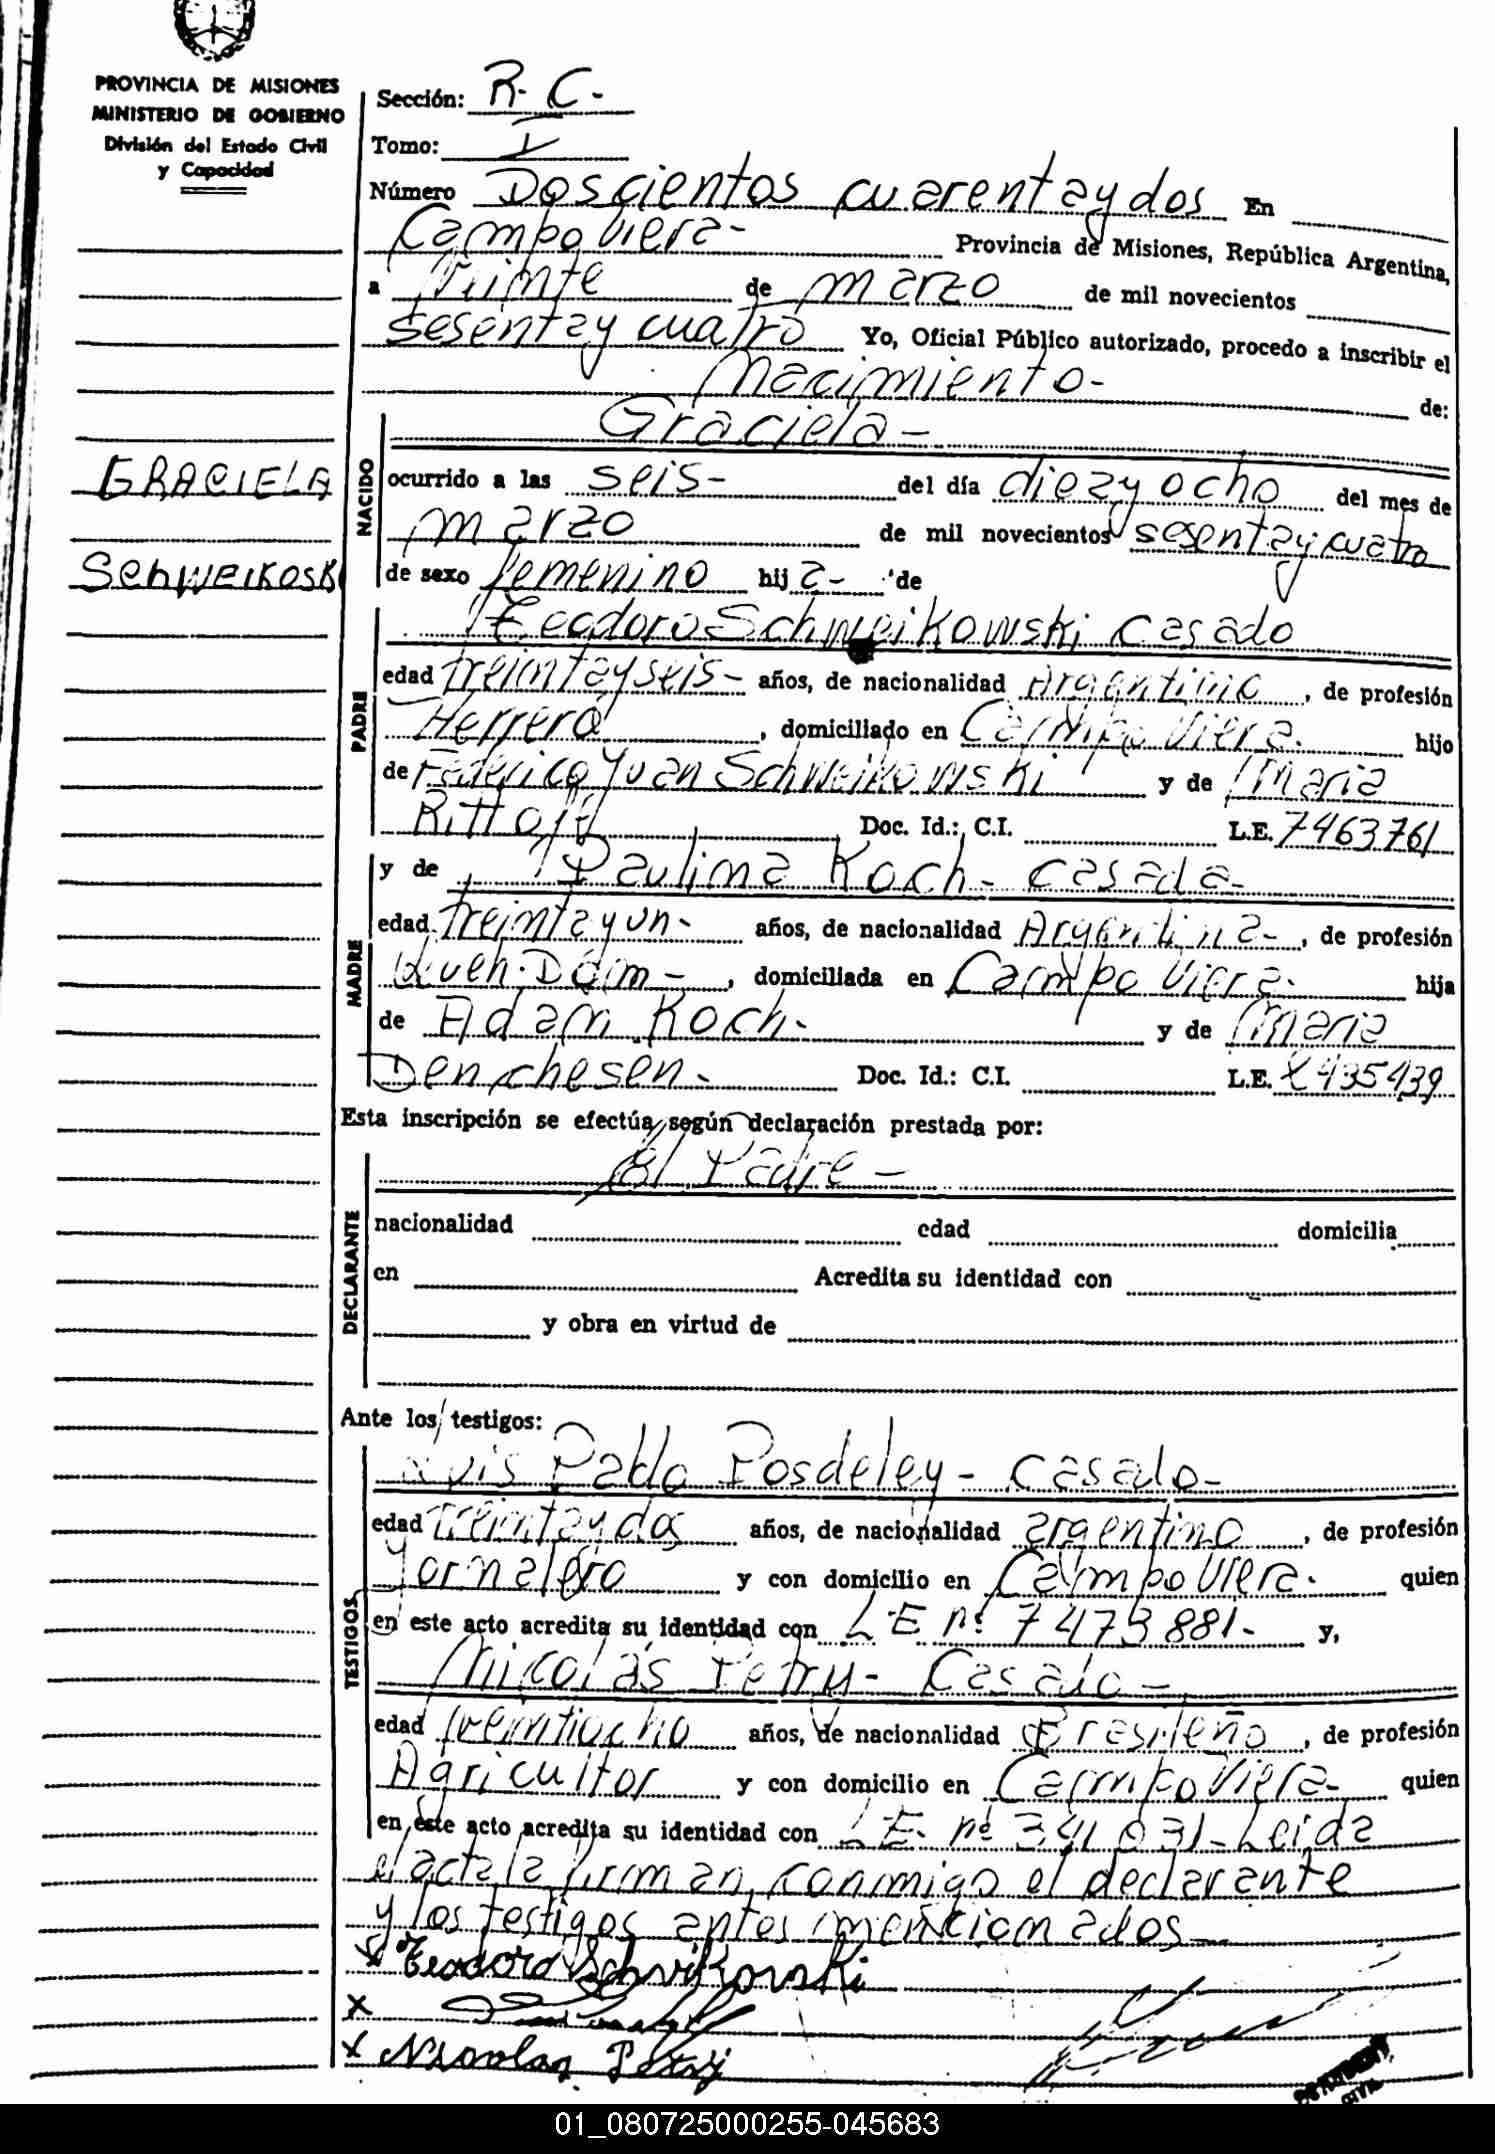 PROVINCIA DE MISIONES
MINISTERIO DE GOBIERNO
División del Estado Civil
y Capacidad
GRACIELA
SchWEIKOSKI
Sección: R. C.-
Tomo: I
Número Doscientos cuarentaydos En
Campo Viera- Provincia de Misiones, República Argentina,
a Veinte de marzo de mil novecientos
sesentay cuatro Yo, Oficial Público autorizado, procedo a inscribir el
Nacimiento- de:
NACIDO
Graciela-
ocurrido a las seis- del día diezyocho del mes de
marzo de mil novecientos sesentaycuatro
de sexo femenino hij a- de
PADRE
Teodoro Schweikowski casado
edad treintayseis- años, de nacionalidad Argentino, de profesión
Herrero, domiciliado en Campo Viera. hijo
de Federico Juan Schweikowski y de Maria
Rittoff Doc. Id.: C.I. L.E. 7463761
MADRE
y de Paulina Koch- casada-
edad treintayun- años, de nacionalidad Argentina-, de profesión
Queh. Dom-, domiciliada en Campo Viera. hija
de Adam Koch. y de Maria
Denchesen. Doc. Id.: C.I. L.E. 435439
Esta inscripción se efectúa según declaración prestada por:
DECLARANTE
El Padre-
nacionalidad edad domicilia
en Acredita su identidad con
y obra en virtud de
Ante los testigos:
TESTIGOS
Luis Pablo Posdeley- casado-
edad treintaydos años, de nacionalidad argentino, de profesión
Jornalero y con domicilio en Campo Viera. quien
en este acto acredita su identidad con L E nº 7473881- y,
Nicolás Petry- Casado-
edad veintiocho años, de nacionalidad Brasileño, de profesión
Agricultor y con domicilio en Campo Viera- quien
en este acto acredita su identidad con L E. nº 341031- Leida
el acta la firman conmigo el declarante
y los testigos antes mencionados-
x Teodoro Schvikowski
x
x Nicolas Petry
CIVIL
01_080725000255-045683